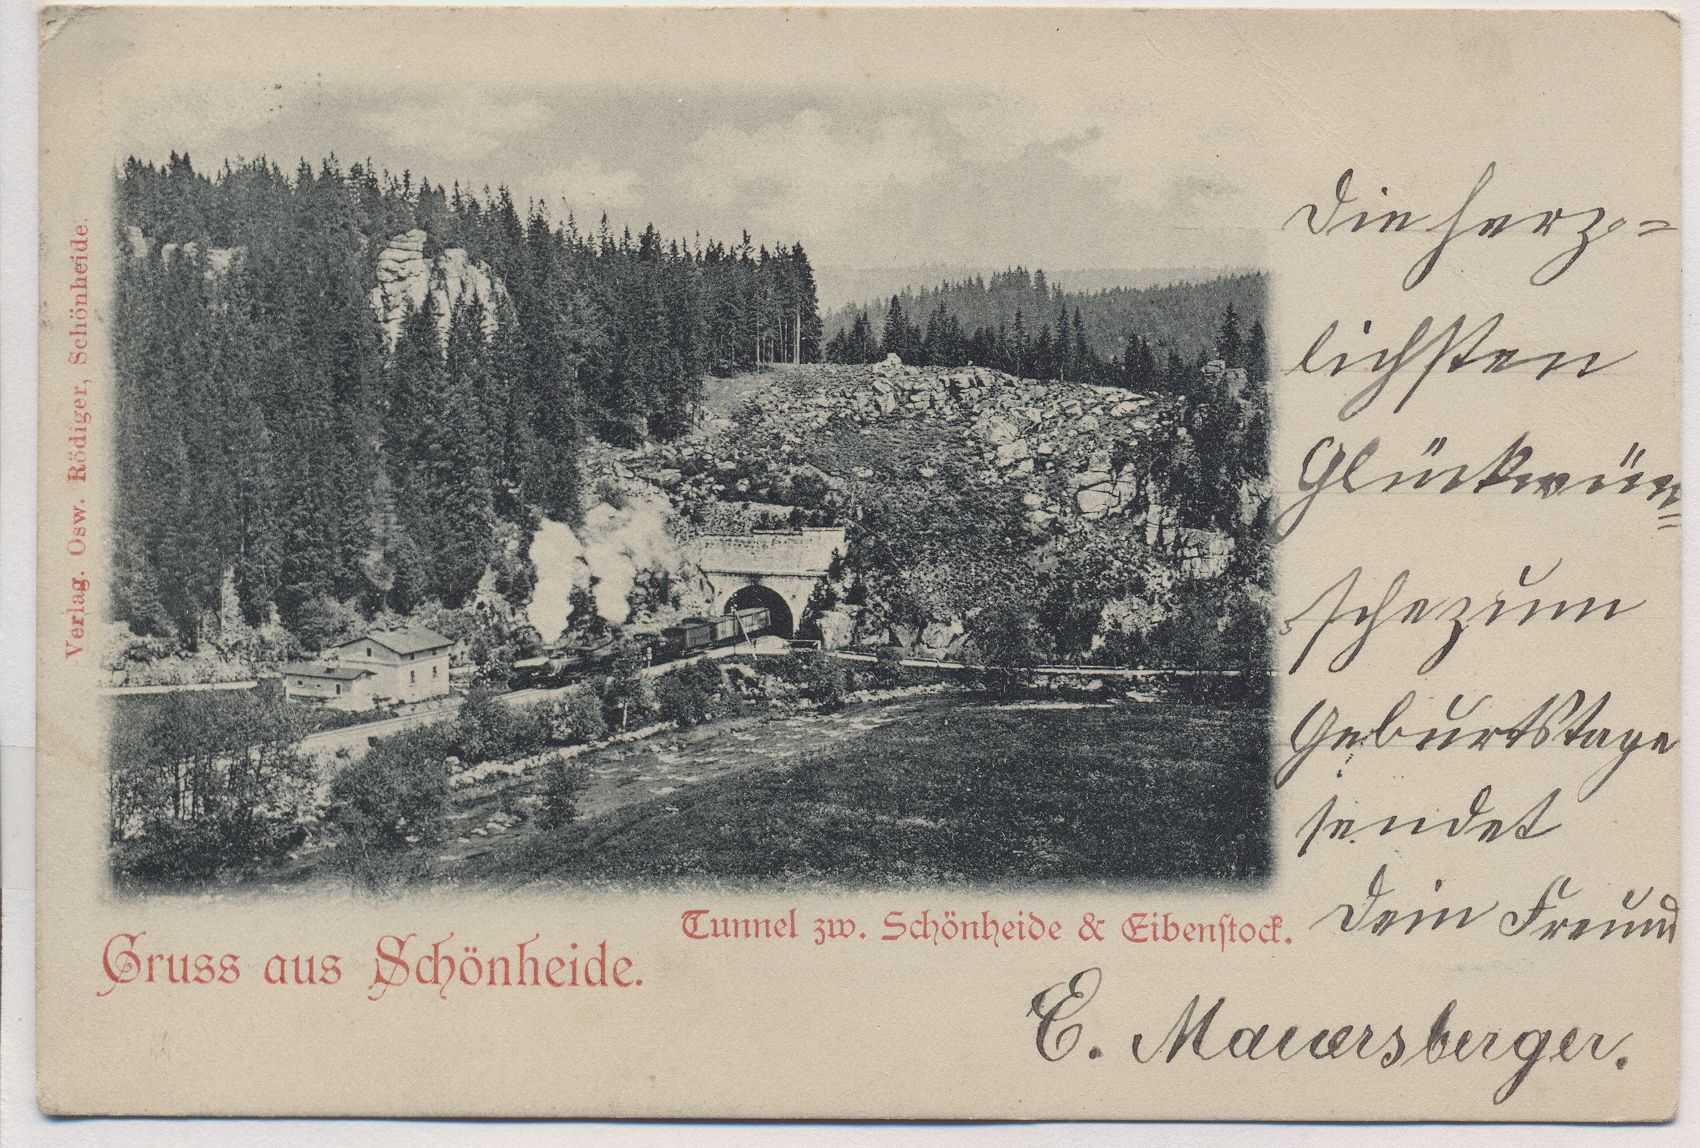 Verlag. Osw. Rödiger, Schönheide.
Die herz=
lichsten
Glückwün=
sche zum
Geburtstage
sendet
Dein Freund
E. Mauersberger.
Tunnel zw. Schönheide & Eibenstock.
Gruss aus Schönheide.